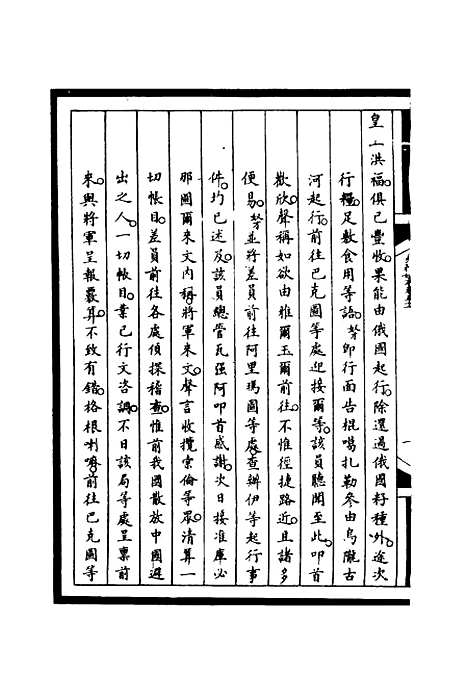 皇上洪福。俱已豐收。果能由俄國起行。除還過俄國籽種。外途次
行糧足敷食用等語。奴才即行面告棍噶扎勒參由烏隴古
河起行前往巴克圖等處迎接爾等。該員聽聞至此。叩首
歡欣。聲稱如欲由雅爾玉爾前往。不惟徑捷路近。且諸多
便易。奴才並將差員前往阿里瑪圖等處查辦伊等起行事
件。均已述及。該員總管瓦強阿叩首感謝。次日接准庫必
那圖爾來文內稱。將軍來文。聲言收攬索倫等眾。清算一
切帳目。差員前往各處偵探稽查。惟前我國散放中國逃
出之人。一切帳目。業已行文咨調。不日該局等處呈稟前
來。與將軍呈報覈算。不致有錯。格根喇嘛前往巴克圖等